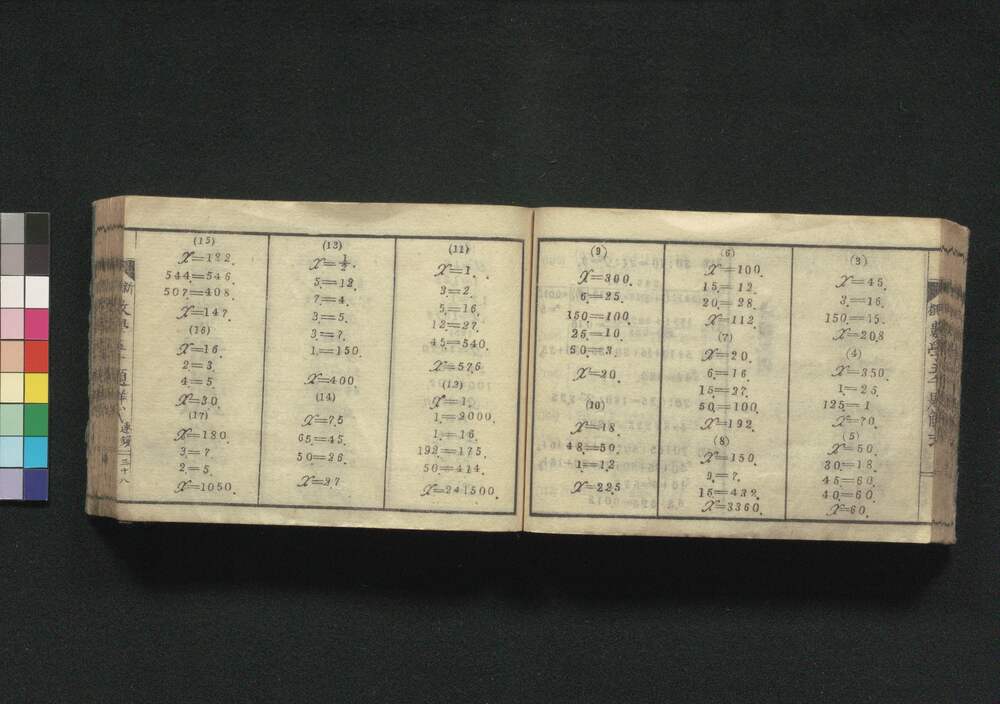 (3)
x=45.
3.=16.
150.=15.
x=208
(4)
x=350.
1.=25.
125.=1
x=70.
(5)
x=50.
30.=18.
45=60.
40.=60.
x=60.
(6)
x=100.
15.=12.
20.=28.
x=112
(7)
x=20.
6.=16.
15.=27.
50.=100.
x=192.
(8)
x=150.
9.=7.
15=432.
x=3360.
(9)
x=300.
6.=25.
150=100.
25=10.
50.=3.
x=20.
(10)
x=18.
48.=50.
1.=12
x=225
(11)
x=1.
3.=2.
5.=16.
12=27.
45=540.
x=57.6
(12)
x=1.
1.=2000.
1.=16.
192=175.
50=414.
x=241500.
(13)
x=1/2.
5.=12
7.=4.
3.=5.
3.=7.
1.=150.
x=400
(14)
x=75
65=45.
50=26.
x=27
(15)
x=182.
544=546.
507=408.
x=147.
(16)
x=16.
2.=3.
4.=5.
x=30
(17)
x=180.
3.=7.
2.=5.
x=1050.